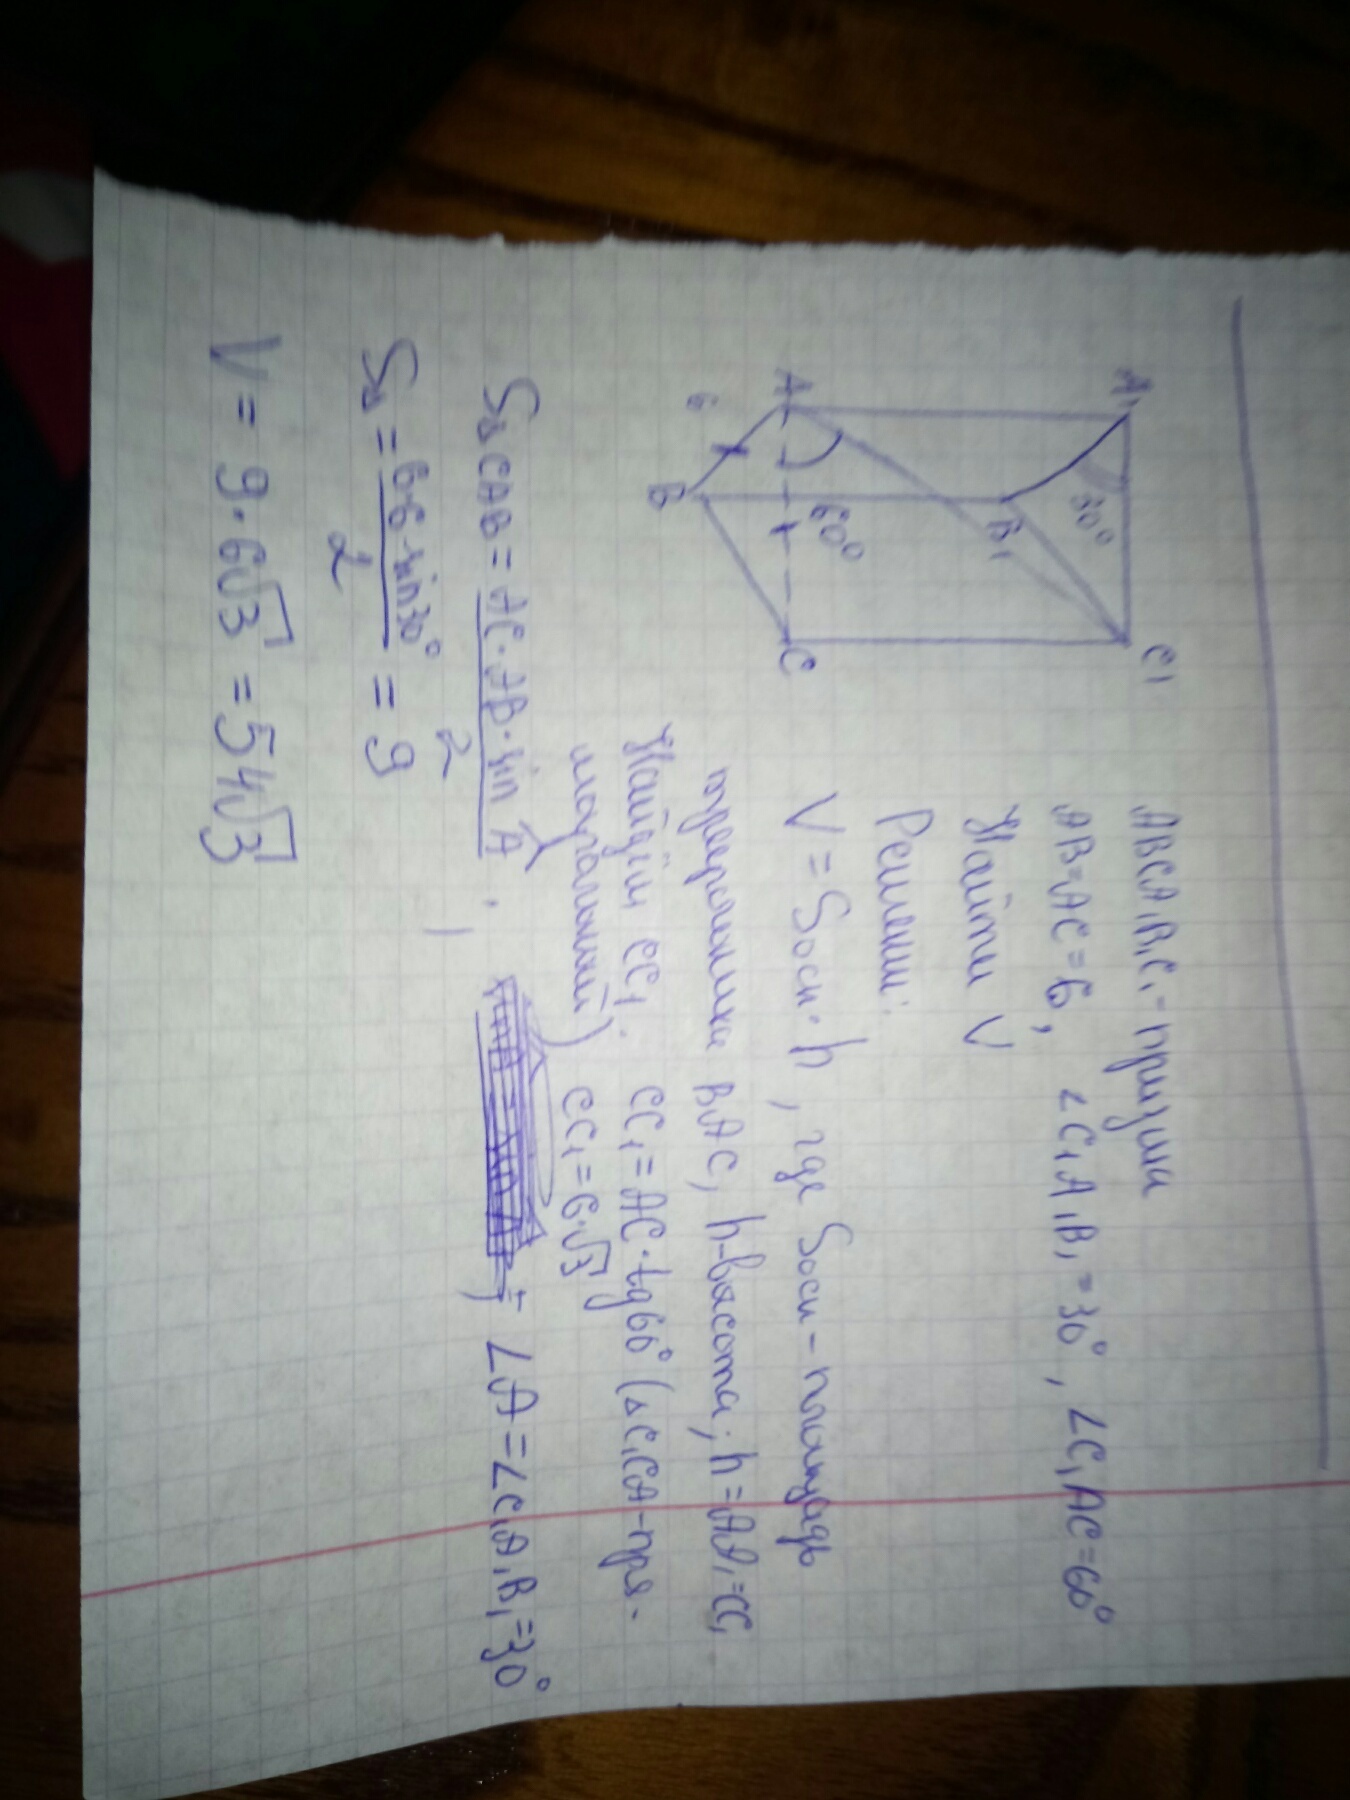 A₁
C₁
30°
B₁
60°
A
C
6
B
ABCA₁B₁C₁ - призма
AB=AC=6, ∠C₁A₁B₁=30°, ∠C₁AC=60°
Найти V
Решение:
V=Sосн·h, где Sосн - площадь
треугольника BAC, h-высота; h=AA₁=CC₁
Найдём CC₁: CC₁=AC·tg60° (△C₁CA-пря-
моугольный) CC₁=6·√3
S△CAB = AC·AB·sin A / 2, ∠A=∠C₁A₁B₁=30°
S△ = 6·6·sin30° / 2 = 9
V = 9·6√3 = 54√3